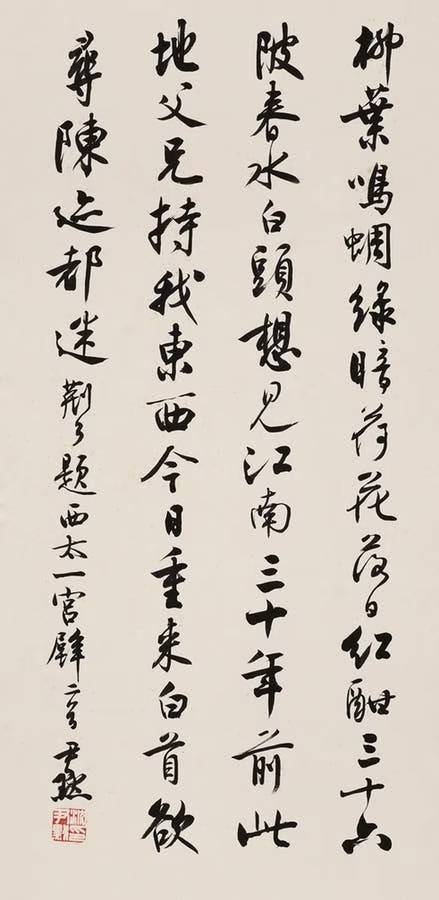 柳葉鳴蜩綠暗荷花落日紅酣三十六
陂春水白頭想見江南三十年前此
地父兄持我東西今日重來白首欲
尋陳迹都迷 荆公題西太一宮壁二首 尹默